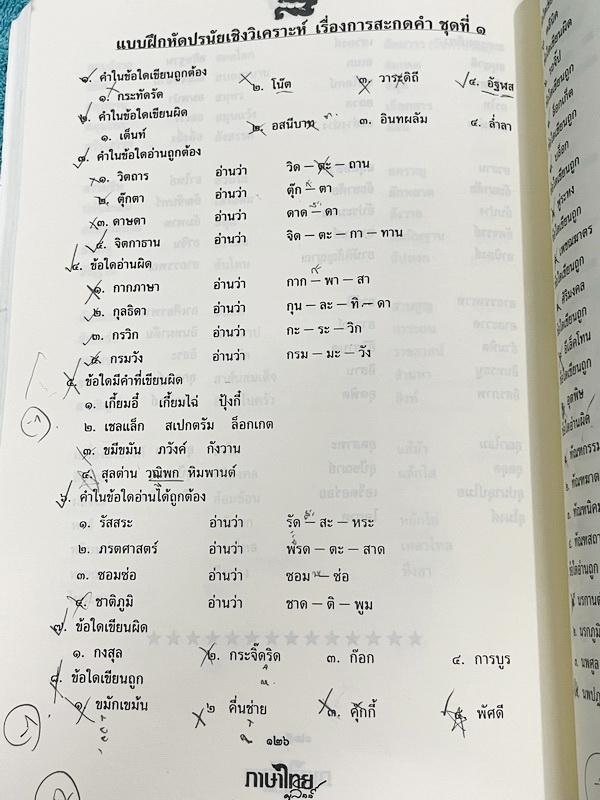 แบบฝึกหัดปรนัยเชิงวิเคราะห์ เรื่องการสะกดคำ ชุดที่ ๑
๑. คำในข้อใดเขียนถูกต้อง
๑. กระทัดรัด ๒. โน๊ต ๓. วาระดิถี ๔. อัฐฬส
๒. คำในข้อใดเขียนผิด
๑. เต็นท์ ๒. อสนีบาท ๓. อินทผลัม ๔. ล่ำลา
๓. คำในข้อใดอ่านถูกต้อง
๑. วิตถาร อ่านว่า วิด – ตะ – ถาน
๒. ตุ๊กตา อ่านว่า ตุ๊ก – ตา
๓. ดาษดา อ่านว่า ดาด – ดา
๔. จิตกาธาน อ่านว่า จิด – ตะ – กา – ทาน
๔. ข้อใดอ่านผิด
๑. กากภาษา อ่านว่า กาก – พา – สา
๒. กุลธิดา อ่านว่า กุน – ละ – ทิ – ดา
๓. กรวิก อ่านว่า กะ – ระ – วิก
๔. กรมวัง อ่านว่า กรม – มะ – วัง
๕. ข้อใดมีคำที่เขียนผิด
๑. เกี้ยมอี๋ เกี้ยมไฉ่ ปุ้งกี๋
๒. เชลแล็ก สเปกตรัม ล็อกเกต
๓. ขมีขมัน ภวังค์ กังวาน
๔. สุลต่าน วณิพก หิมพานต์
๖. คำในข้อใดอ่านได้ถูกต้อง
๑. รัสสระ อ่านว่า รัด – สะ – หระ
๒. ภรตศาสตร์ อ่านว่า พรด – ตะ – สาด
๓. ซอมซ่อ อ่านว่า ซอม – ซ่อ
๔. ชาติภูมิ อ่านว่า ชาด – ติ – พูม
๗. ข้อใดเขียนผิด
๑. กงสุล ๒. กระจิ๊ดริด ๓. ก๊อก ๔. การบูร
๘. ข้อใดเขียนถูก
๑. ขมักเขม้น ๒ คื่นช่าย ๓. คุ้กกี้ ๔. พัศดี
๑๒๖
ภาษาไทย